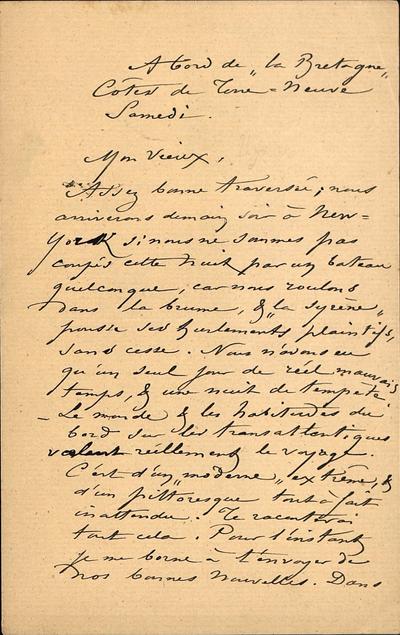 A bord de „ la Bretagne „
Côtes de Terre = Neuve
Samedi.
Mon vieux,
Assez bonne traversée ; nous
arriverons demain soir à New =
York si nous ne sommes pas
coupés cette nuit par un bateau
quelconque, car nous roulons
dans la brume, & „ la syrène „
pousse ses hurlements plaintifs,
sans cesse. Nous n'avons eu
qu'un seul jour de réel mauvais
temps, & une nuit de tempête.
– Le monde & les habitudes du
bord sur les transatlantiques
valent réellement le voyage.
C'est d'un „ moderne „ extrême, &
d'un pittoresque tout à fait
inattendu. Te raconterai
tout cela. Pour l'instant
je me borne à t'envoyer de
nos bonnes nouvelles. Dans